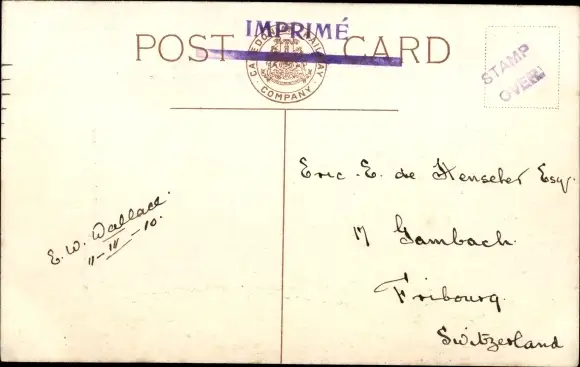 IMPRIMÉ
POST CARD
CALEDONIAN RAILWAY COMPANY
STAMP
OVER
E. W. Wallace.
11-IV-10.
Eric. E. de Henseler Esqr.
17 Gambach.
Fribourg.
Switzerland